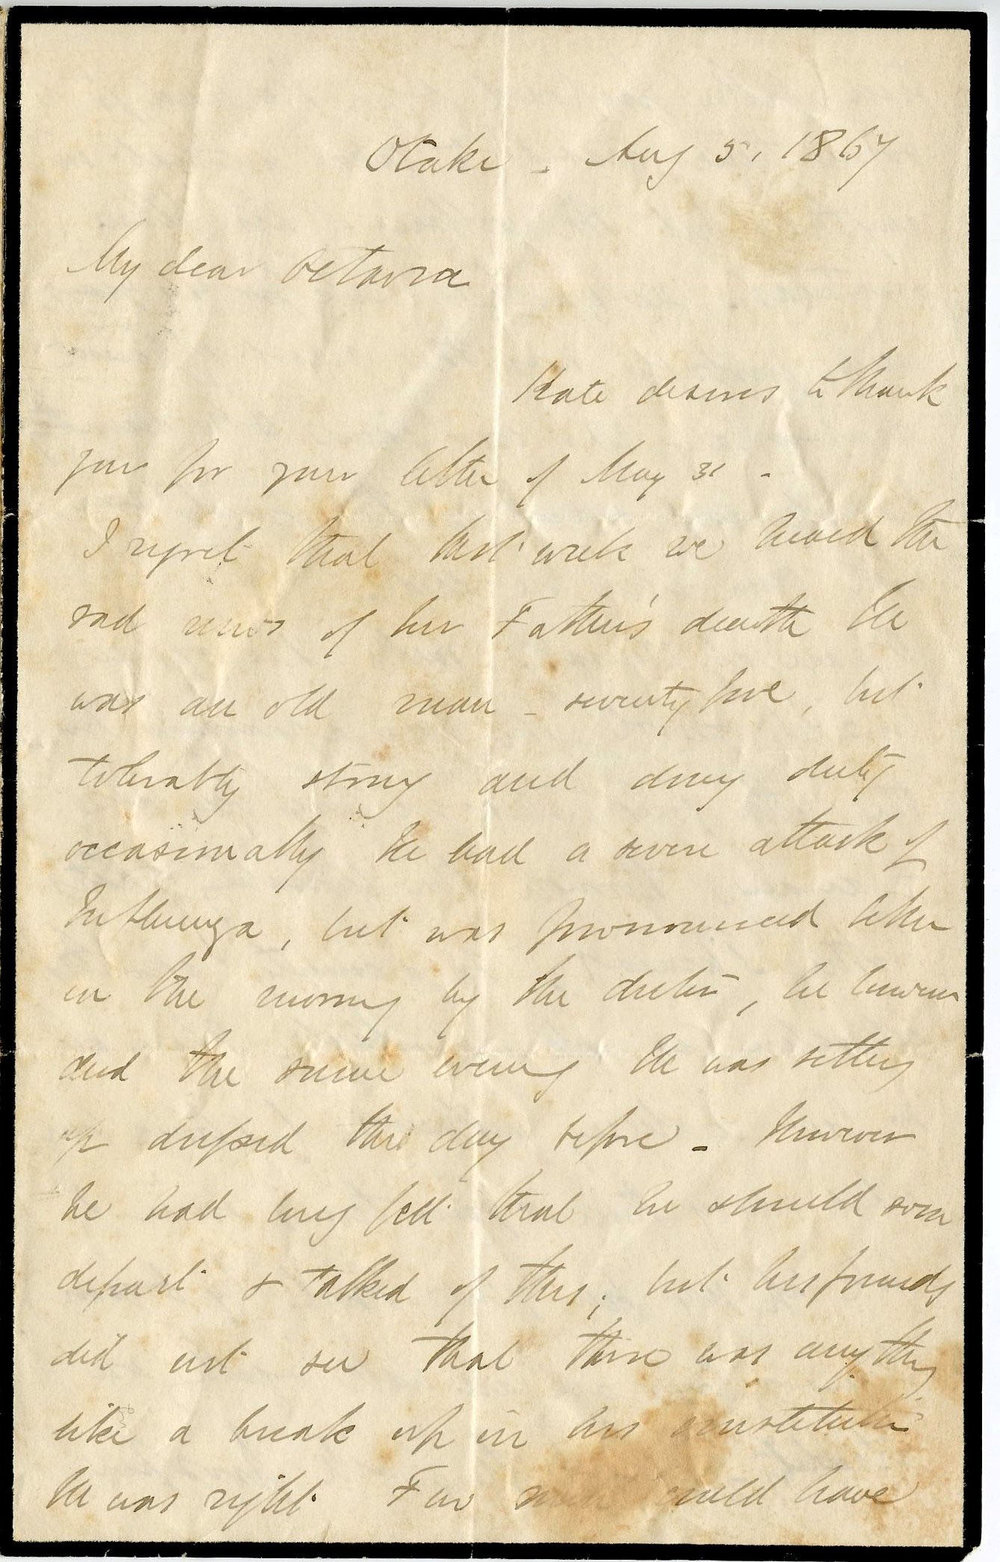 Otaki - Aug 5. 1867
My dear Octavia
Kate desires to thank
you for your letter of May 31 -
I regret that last week we heard the
sad news of her Father's death He
was an old man - seventy five, but
tolerably strong and doing duty
occasionally He had a severe attack of
Influenza, but was pronounced better
in the morning by the doctor, he however
died the same evening He was sitting
up dressed the day before - However
he had long felt that he should soon
depart & talked of this; but his friends
did not see that there was any thing
like a break up in his constitution
He was right. Few men could have